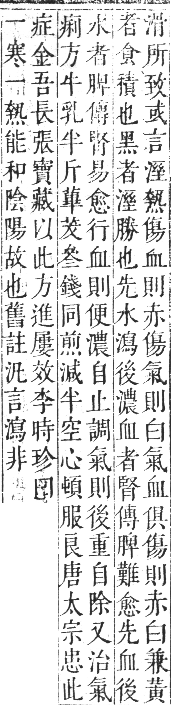 滑所致或言溼熱傷血則赤傷氣則白氣血俱傷則赤白兼黃
者食積也黑者溼勝也先水瀉後濃血者腎傳脾難愈先血後
水者脾傳腎易愈行血則便濃自止調氣則後重自除又治氣
痢方牛乳半斤蓽茇叁錢同煎減半空心頓服良唐太宗患此
症金吾長張寶藏以此方進屢效李時珍曰
一寒一熱能和陰陽故也舊註汎言瀉非